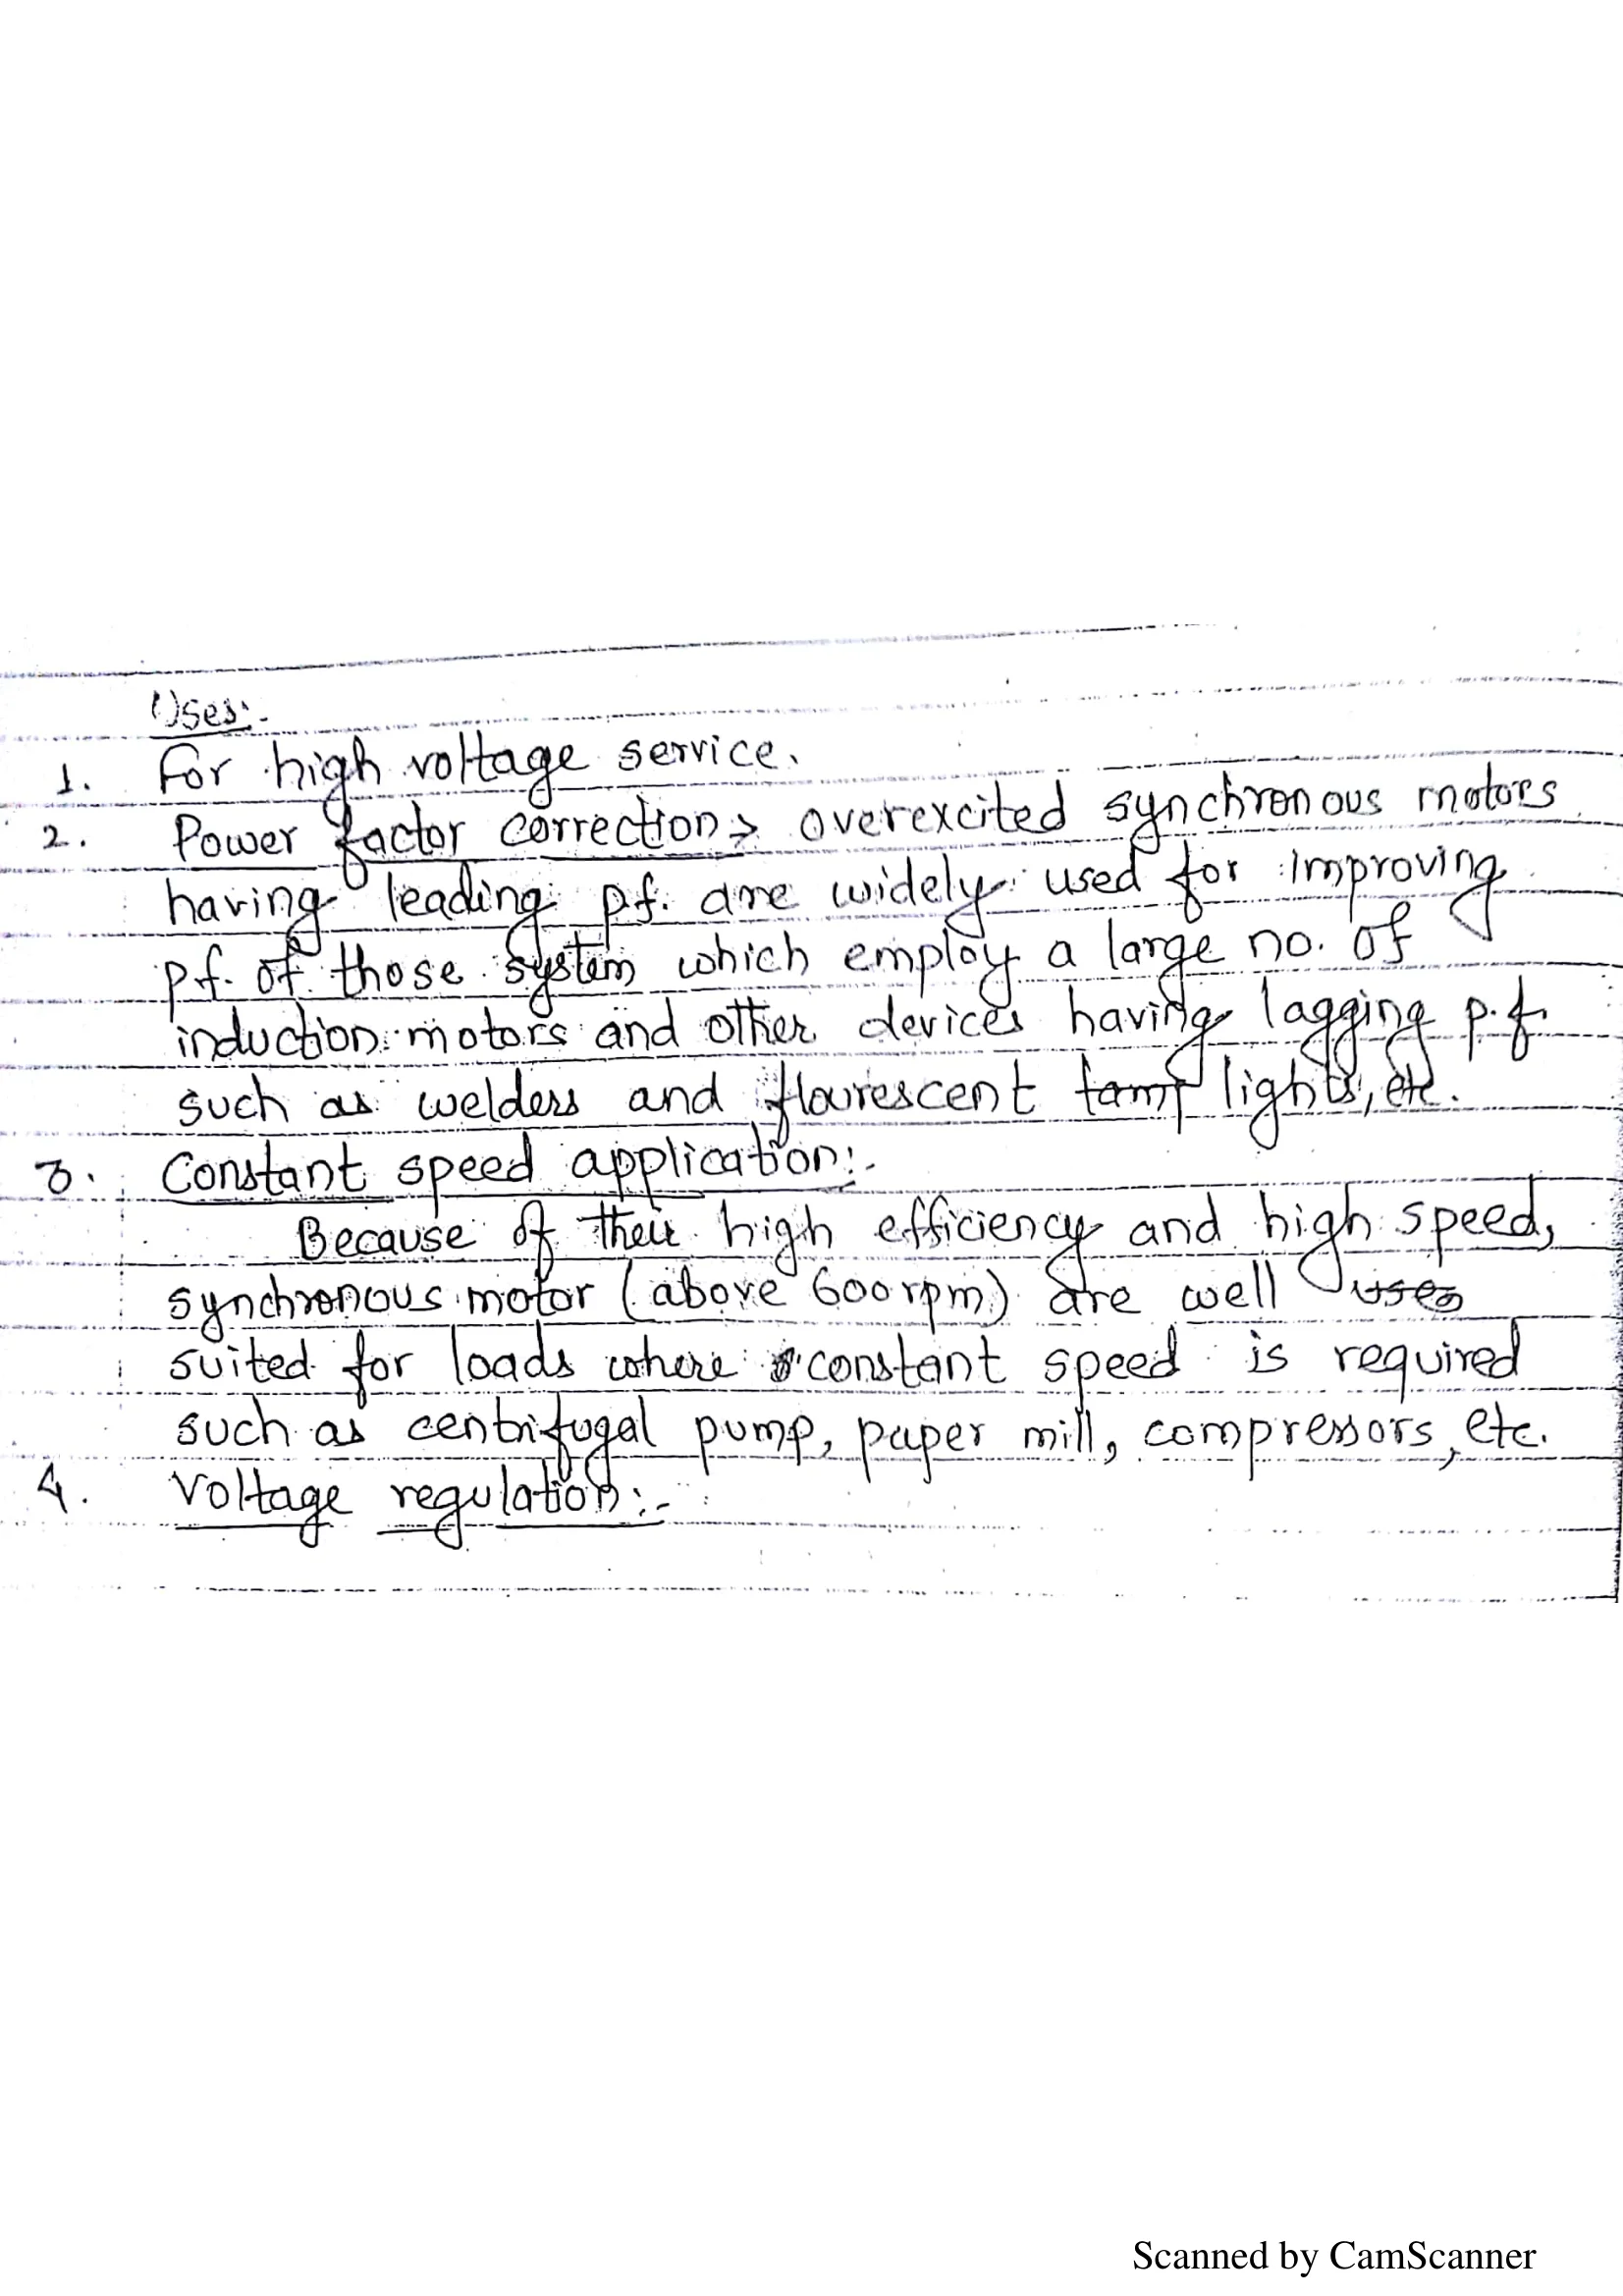 Uses:-
1. For high voltage service.
2. Power factor correction > overexcited synchronous motors
having leading p.f. are widely used for improving
p.f. of those system which employ a large no. of
induction motors and other devices having lagging p.f.
such as welders and flourescent lights, etc.
3. Constant speed application:-
Because of their high efficiency and high speed,
synchronous motor (above 600 rpm) are well uses
suited for loads where constant speed is required
such as centrifugal pump, paper mill, compressors, etc.
4. Voltage regulation:-
Scanned by CamScanner